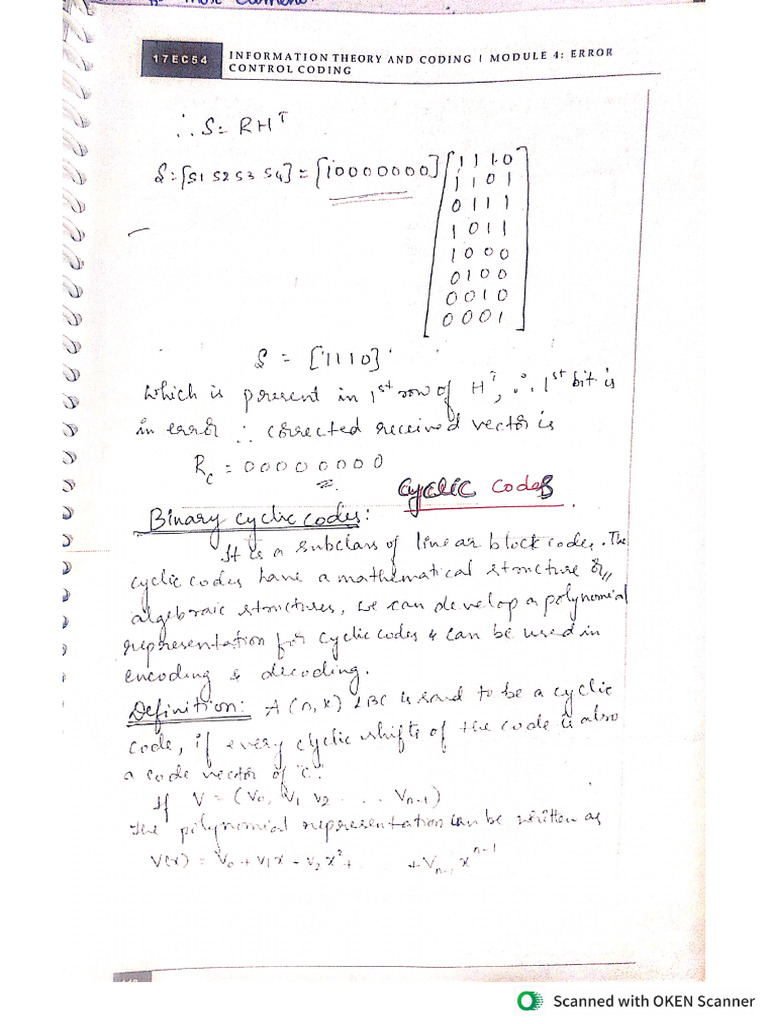 17EC54
INFORMATION THEORY AND CODING | MODULE 4: ERROR
CONTROL CODING
∴ S = RHᵀ
S = [S1 S2 S3 S4] = [10000000] [1 1 1 0
1 1 0 1
0 1 1 1
1 0 1 1
1 0 0 0
0 1 0 0
0 0 1 0
0 0 0 1]
S = [1110]
Which is present in 1st row of Hᵀ, ∴ 1st bit is
in error ∴ corrected received vector is
Rc = 00000000
Cyclic Codes
Binary cyclic codes:
It is a subclass of linear block codes. The
cyclic codes have a mathematical structure &
algebraic structures, we can develop a polynomial
representation for cyclic codes & can be used in
encoding & decoding.
Definition: A (n, k) LBC is said to be a cyclic
code, if every cyclic shifts of the code is also
a code vector of "C".
If V = (V0, V1 V2 . . . . Vn-1)
The polynomial representation can be written as
V(x) = V0 + V1x + V2x² + + Vn-1 xⁿ⁻¹
Scanned with OKEN Scanner